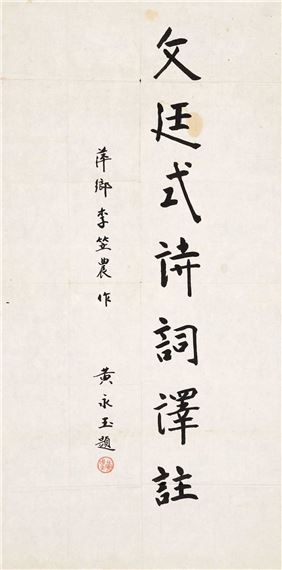 文廷式詩詞澤註
萍鄉李笠農作
黄永玉題